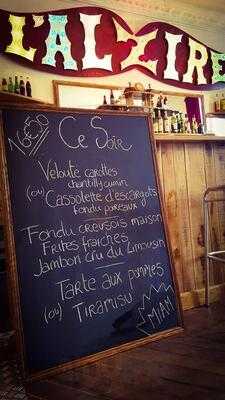 L'ALZIRE
16€50
Ce Soir
Velouté carottes
chantilly cumin
(ou) Cassolette d'escargots
fondu poireaux
Fondu creusois maison
Frites fraîches
Jambon cru du Limousin
Tarte aux pommes
(ou) Tiramisu
MIAM